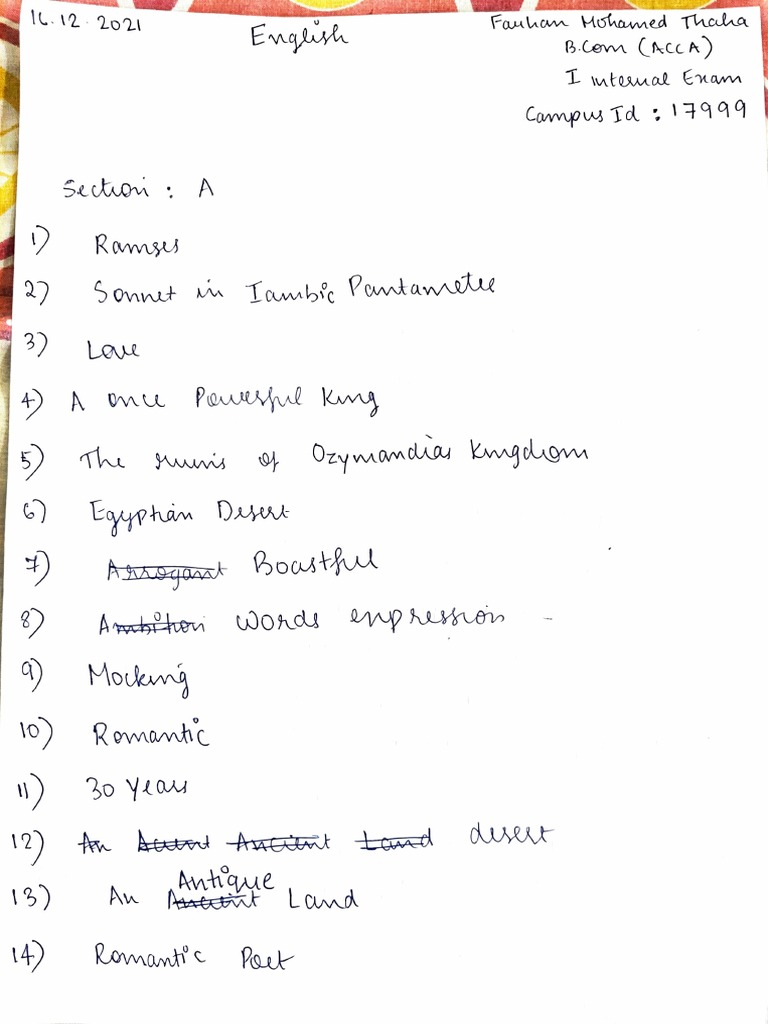 16.12.2021
English
Farhan Mohamed Thaha
B.Com (ACCA)
I internal Exam
Campus Id : 17999
Section : A
1) Ramses
2) Sonnet in Iambic Pantametre
3) Love
4) A once Powerful King
5) The ruins of Ozymandias Kingdom
6) Egyptian Desert
7) Arrogant Boastful
8) Ambition words enpression -
9) Mocking
10) Romantic
11) 30 Years
12) An Acient Ancient Land desert
13) An Ancient Antique Land
14) Romantic Poet